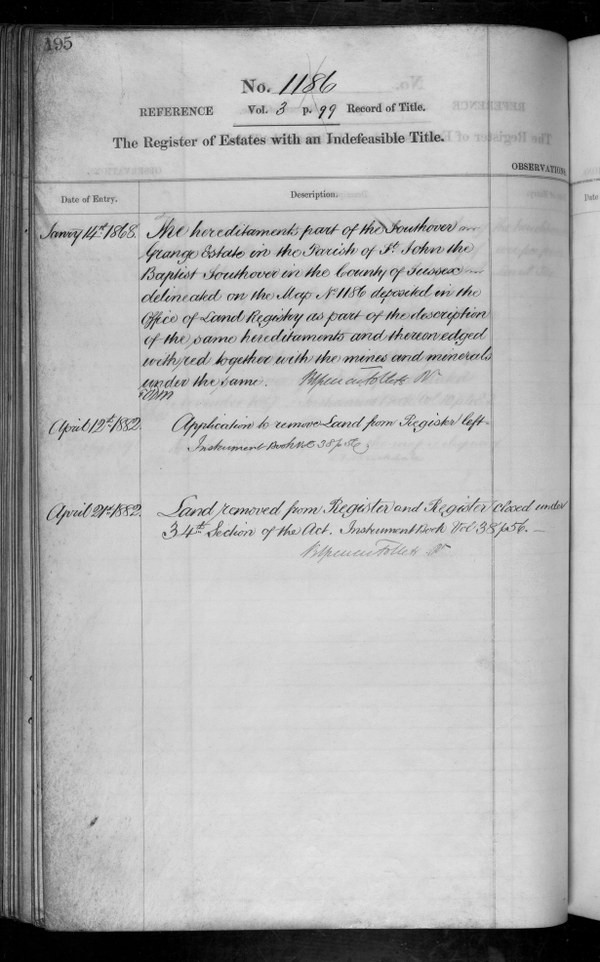 195
No. 1186
REFERENCE Vol. 3 p. 99 Record of Title.
The Register of Estates with an Indefeasible Title.
OBSERVATIONS.
Date of Entry. Description.
Date
14th 1868. The hereditaments part of the Southover
Grange Estate in the Parish of St. John the
Baptist Southover in the County of Sussex
delineated on the Map No 1186 deposited in the
Office of Land Registry as part of the description
of the same hereditaments and thereon edged
with red together with the mines and minerals
under the same.
April 12th 1882. Application to remove Land from Register left
Instrument Book Vol 38 p 56
April 21st 1882. Land removed from Register and Register closed under
34th Section of the Act. Instrument Book Vol 38 p 56.